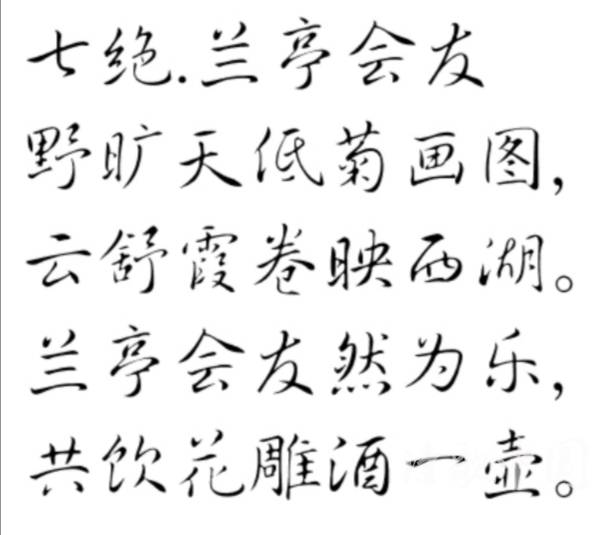 七绝.兰亭会友
野旷天低菊画图，
云舒霞卷映西湖。
兰亭会友然为乐，
共饮花雕酒一壶。